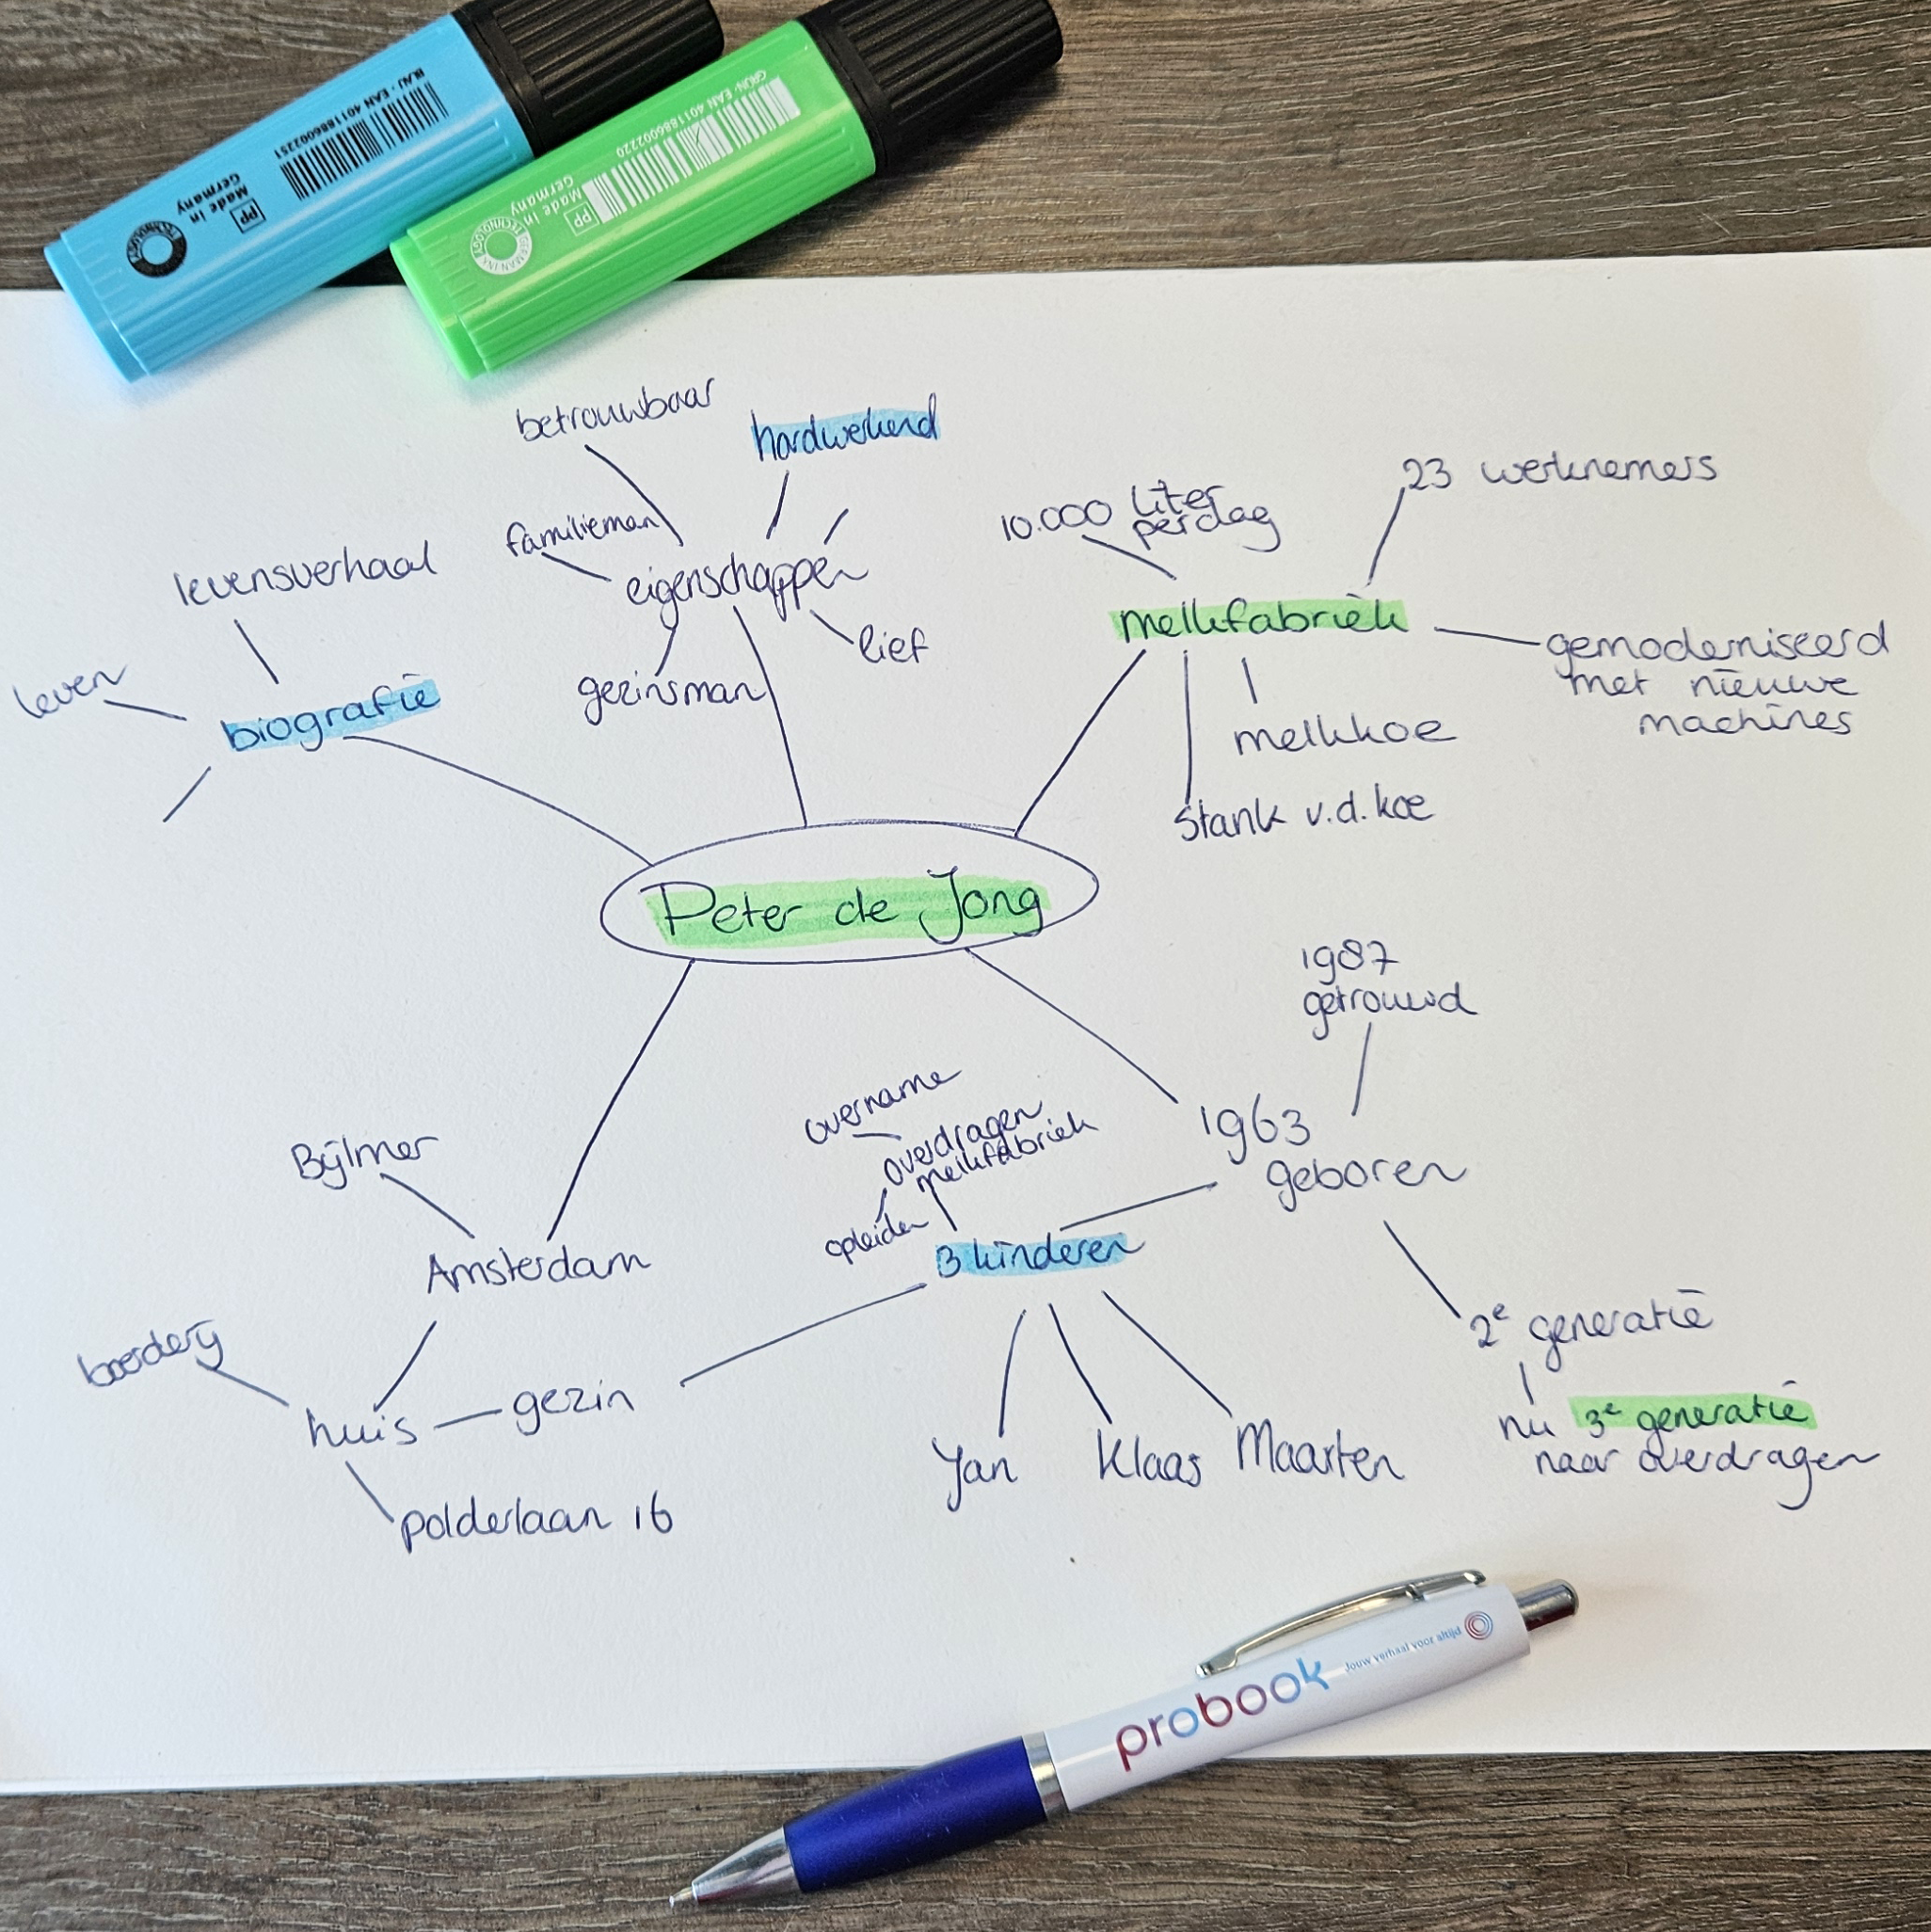 BLAU - EAN 4011886002251
Made in
Germany
PP
TECHNOLOGY
GRÜN - EAN 4011886002220
Made in
Germany
PP
GERMAN INK TECHNOLOGY
betrouwbaar
hardwerkend
familieman
eigenschappen
gezinsman
lief
levensverhaal
leven
biografie
10.000 liter
per dag
23 werknemers
melkfabriek
gemoderniseerd
met nieuwe
machines
melkkoe
Stank v.d. koe
Peter de Jong
1987
getrouwd
1963
geboren
overname
overdragen
melkfabriek
opleiden
3 kinderen
Bijlmer
Amsterdam
boerderij
huis
gezin
polderlaan 16
Jan
Klaas
Maarten
2e generatie
nu 3e generatie
naar overdragen
probook
Jouw verhaal voor altijd